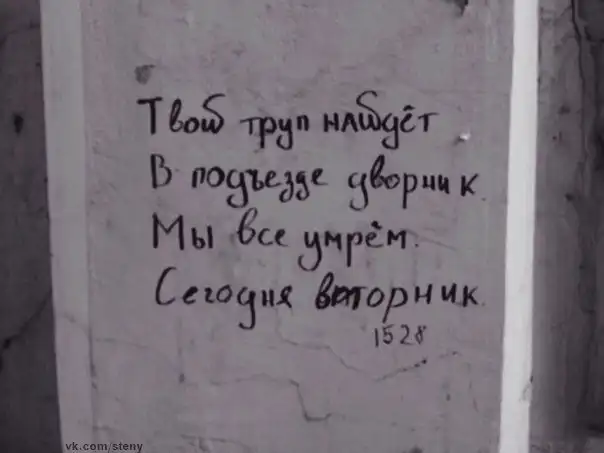 Твой труп найдёт
В подъезде дворник.
Мы все умрём.
Сегодня вторник.
1528
vk.com/steny